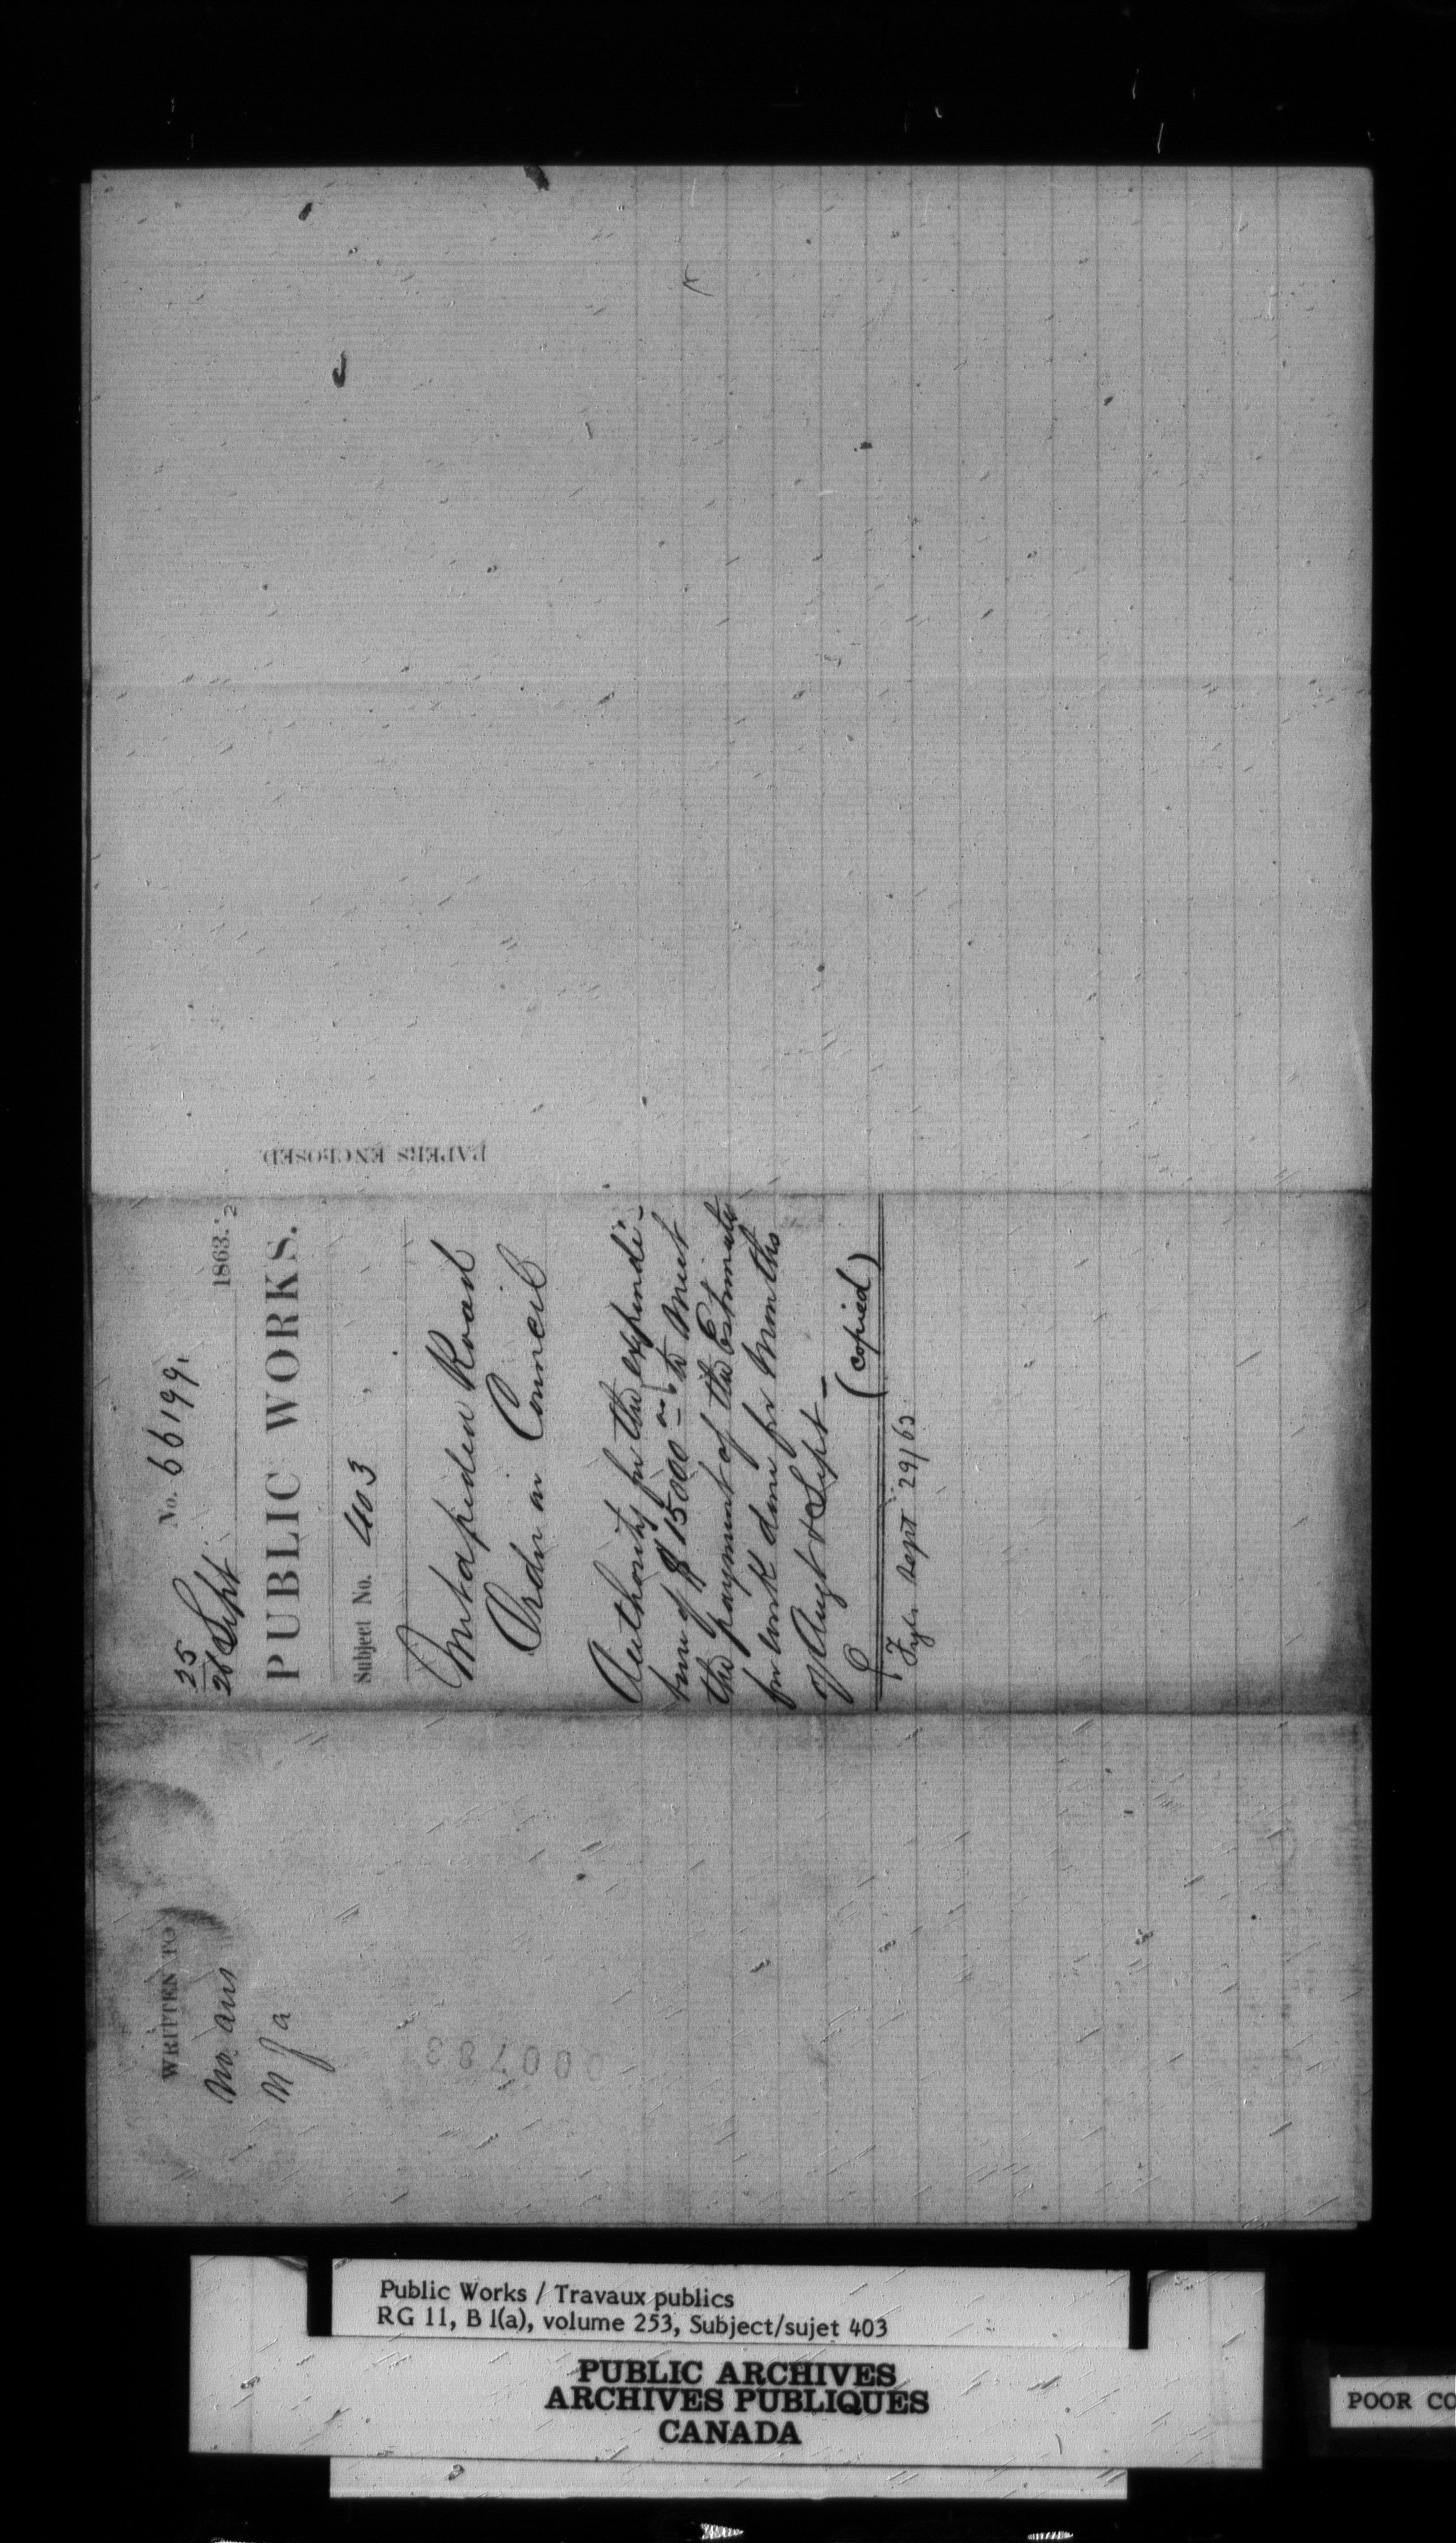 No. 66199.
25
26 Sept 1863. 2
PUBLIC WORKS.
Subject No. 403
Metapedia Road
Order in Council
Authority for the expendi-
ture of $15000 00 to meet
the payment of the Estimates
for work done for Months
of Augt & Sept —
(copied)
Fyle Sept 29/63
PAPERS ENCLOSED
WRITTEN TO
No ans
000783
Public Works / Travaux publics
RG 11, B 1(a), volume 253, Subject/sujet 403
PUBLIC ARCHIVES
ARCHIVES PUBLIQUES
CANADA
POOR CO